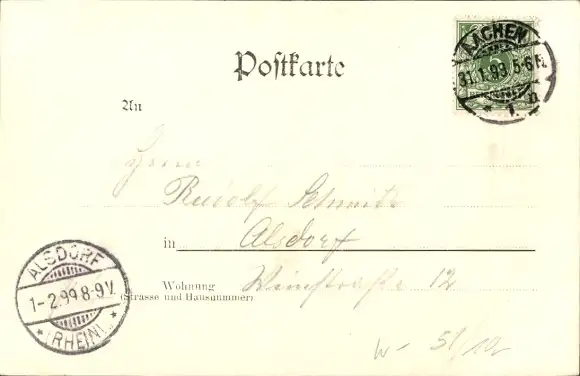 AACHEN
31.1.99 5-6 N.
* 1. n
Postkarte
An
Herrn
Rudolf Schmitz
in Alsdorf
Wohnung
(Strasse und Hausnummer)
12
ALSDORF
1-2.99 8-9 V.
* (RHEINL.) *
W- 51/10